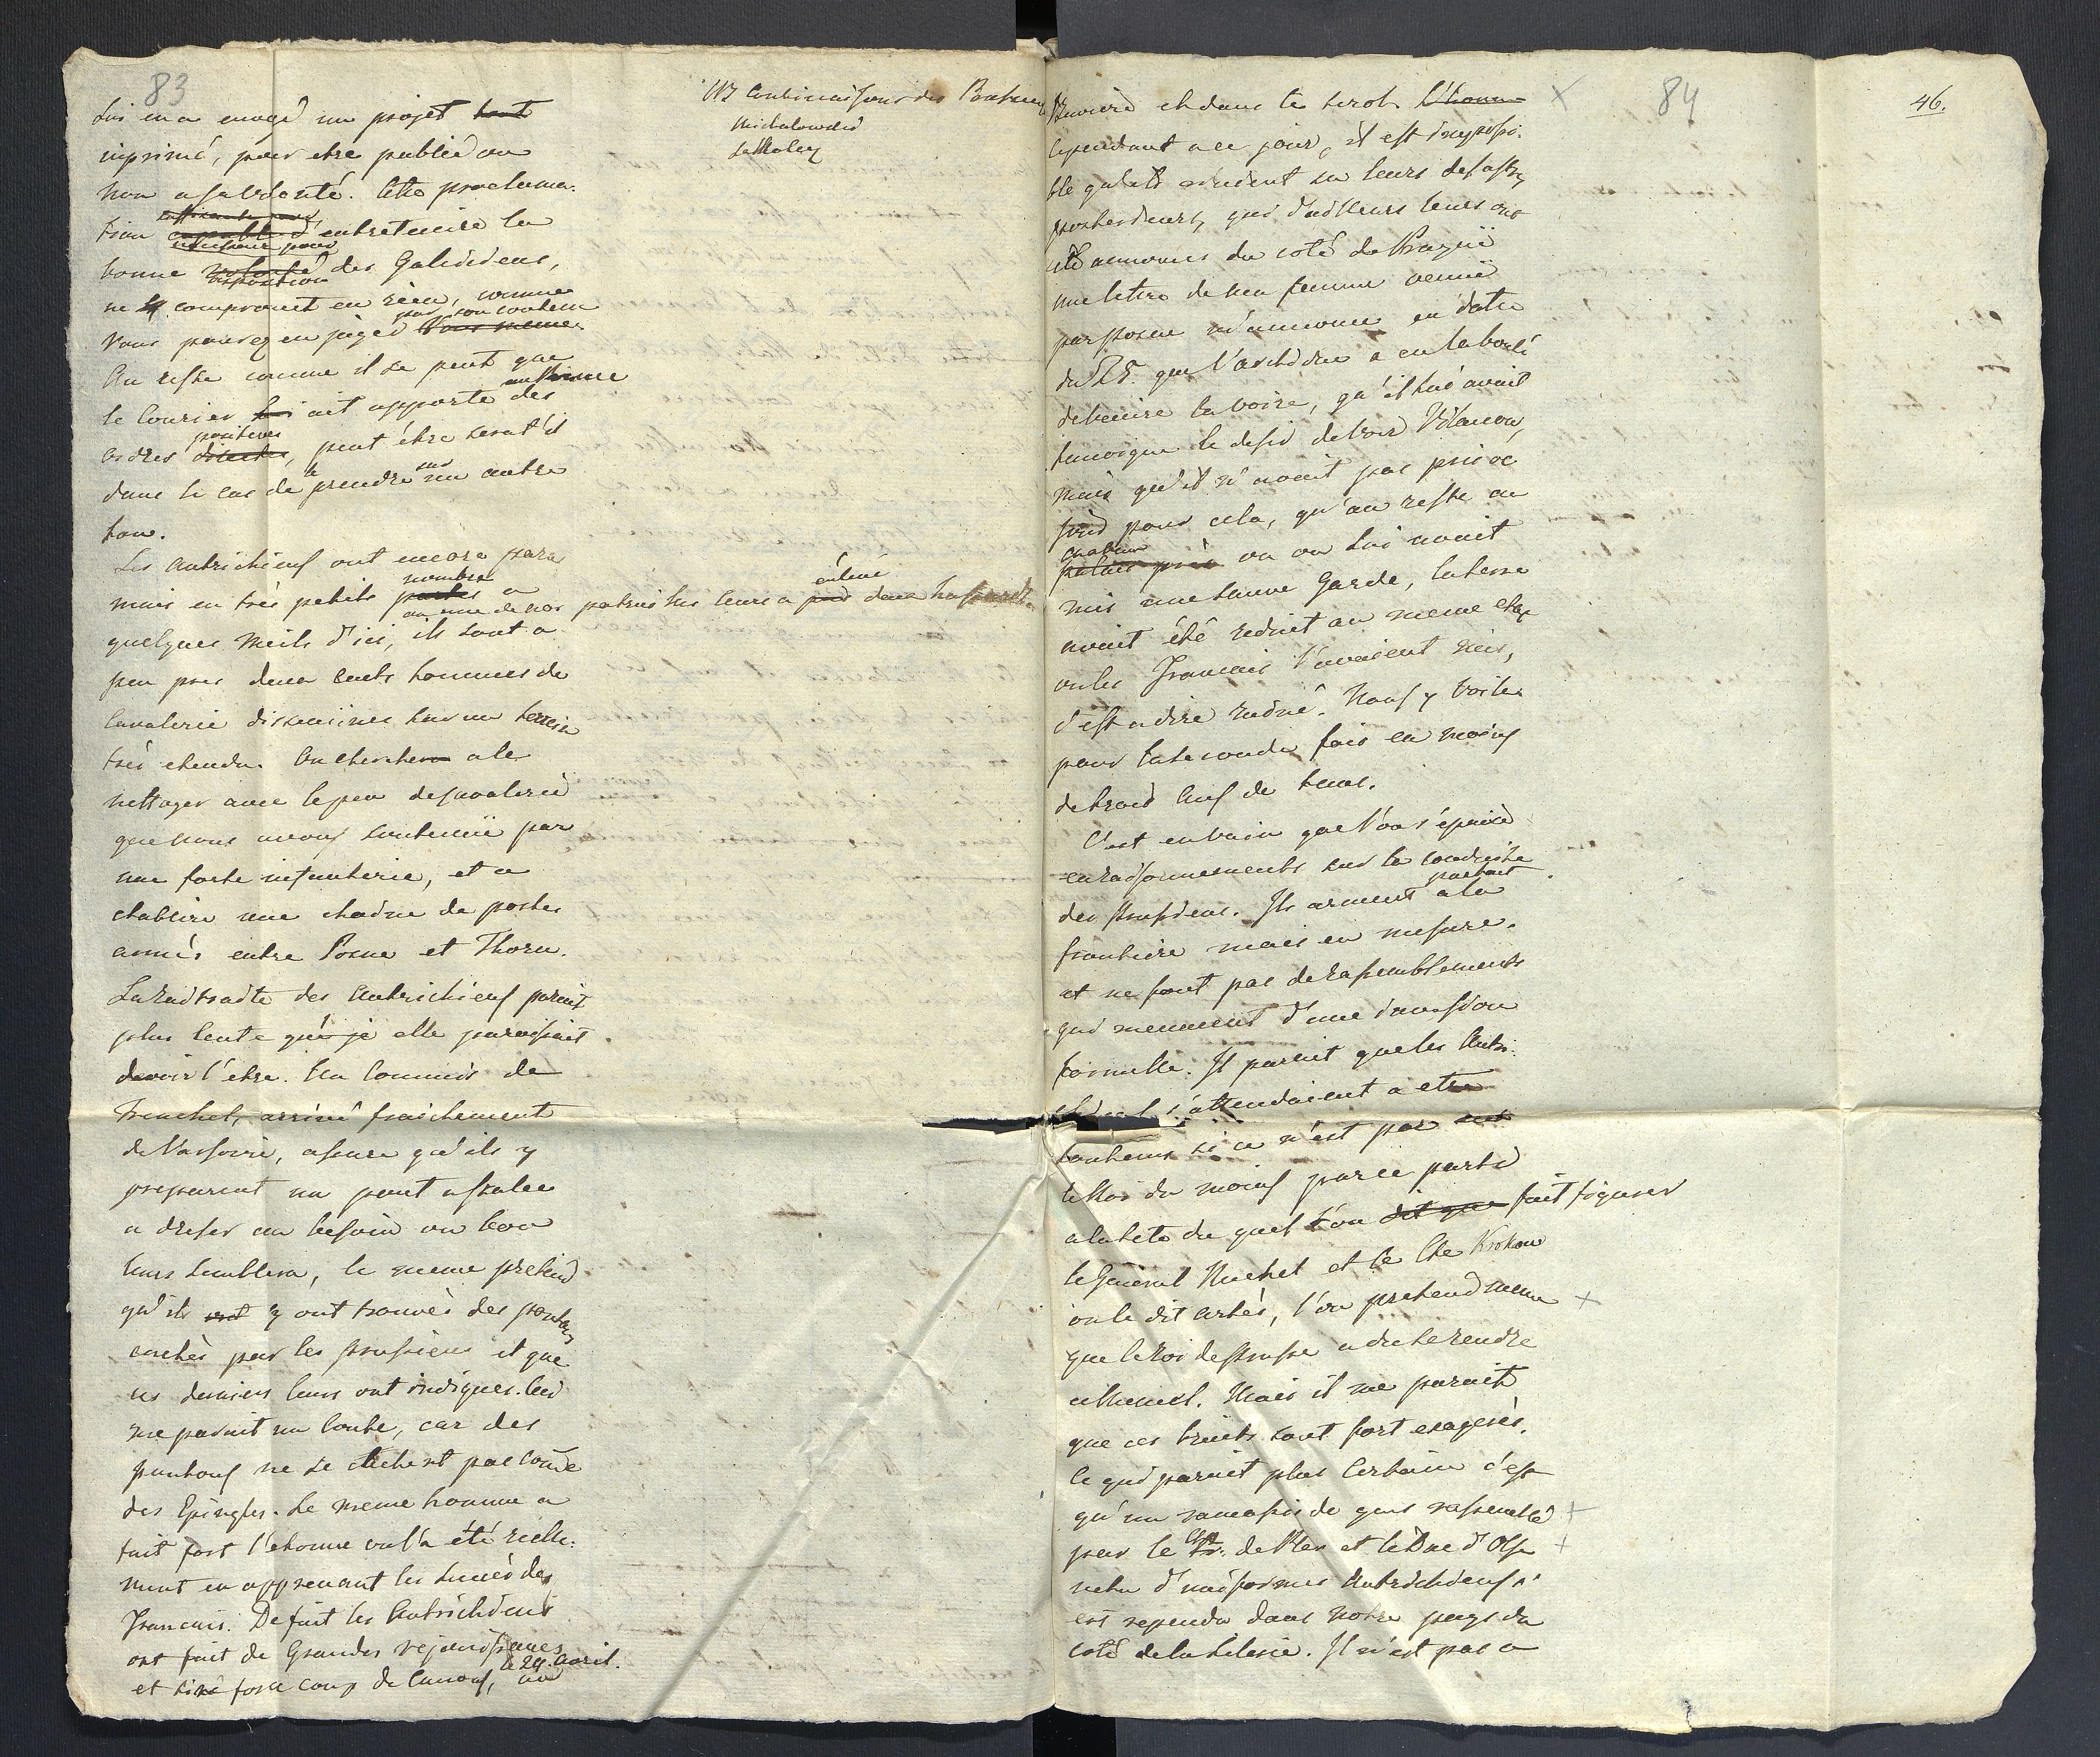 83
lui en a envoyé un projet tout
inprimé, pour etre publié ou
non a sa volonté. Cette proclama:
suffisante pour
tion capable d' entretenire la
necessaire pour
bonne volonté des Galiciens,
disposition
ne le compromet en rien, comme
par son contenu
Vous pourez en juger Vous meme.
Au reste comme il se peut que
le Courier lui ait apporté des
positives
ordres directes, peut être serat'il
dans le cas de le prendre sur un autre
ton.
Les Autrichiens ont encore paru
nombre
mais en très petits postes a
ou une de nos patrouilles leurs a pris enlevé deux hussards
quelques Meils d'ici, ils sont a
peu près deux cents hommes de
Cavalerie disseminés sur un terrein
très etendu. On cherchera a le
nettoyer avec le peu de Cavalerie
que nous avons soutenüe par
une forte infanterie, et a
etablire une chaine de postes
armés entre Posne et Thorn.
La raitraite des Autrichiens parait
plus lente qu'e je elle paroissait
devoir l'etre. Un Commis de
Treuchel, arrivé fraichement
de Varsovie, assure qu'ils y
preparent un pont
a dreser au besoin ou bon
leurs semblera, le meme pretend
qu'ils ont y ont trouvés des pontons
cachés par les prussiens et que
ces derniers leurs ont indiqués. Ceci
me parait un Conte, car des
pontons ne se cachent pas comme
des Epingles. Le meme homme a
fait fort l'etonné ou l'a été réelle:
ment en apprenant les succès des
Francais. De fait les Autrichiens
ont fait de Grandes rejouissances
le 29. Avril.
et tiré force coup de Canons,
NB Continaisons des
Michalowski
84
46.
Baviere et dans le tirol. L'home
Cependant a ce jour, il est impossi:
ble qu'ils eludent sur leurs desastres
posterieurs, qui d'ailleurs leurs ont
été annoncés du coté de Cracovie
une lettre de ma femme venüe
par Posne m'annonce en date
du 25. que l'archiduc a eu la bonté
de venire la voire, qu'il lui avait
temoigné le desir de voir Vilanow,
mais qu'il n'avait pas pris ce
jour pour cela, qu'au reste au
chateau
palais près ou on lui avait
mis une Sauve Garde, la terre
avait été reduit au meme etat
ou les Francais l'avaient mis,
c'est a dire ruiné. Nous y voila
pour la seconde fois en moins
de trois Ans de tems.
C'est en vain que l'on s'épuise
en raisonnements sur la conduite
des Prussiens. Ils arment partout a la
frontiere mais en mesure.
et ne font pas de rassemblements
qui menacent d'une invasion
formelle. Il parait que les Autri:
chiens s'attendaient a etre
soutenus si ce n'est par
le Roi du moins par ce parti
a la tete du quel l'on dit que fait figurer
le General Ruchel et le Cte Krokow
on le dit Artés, l'on pretend meme
que le Roi de Prusse a du se rendre
a Memel. Mais il me parait
que ces bruits sont fort exagerés.
Ce qui parait plus Certain c'est
qu'un ramassis de gens rassemblé
par le de Ples et le Duc d'Ols
vetu d'uniformes Autrichiens s'
est rependu dans notre pays du
coté de la Silesie. Il n'est pas a